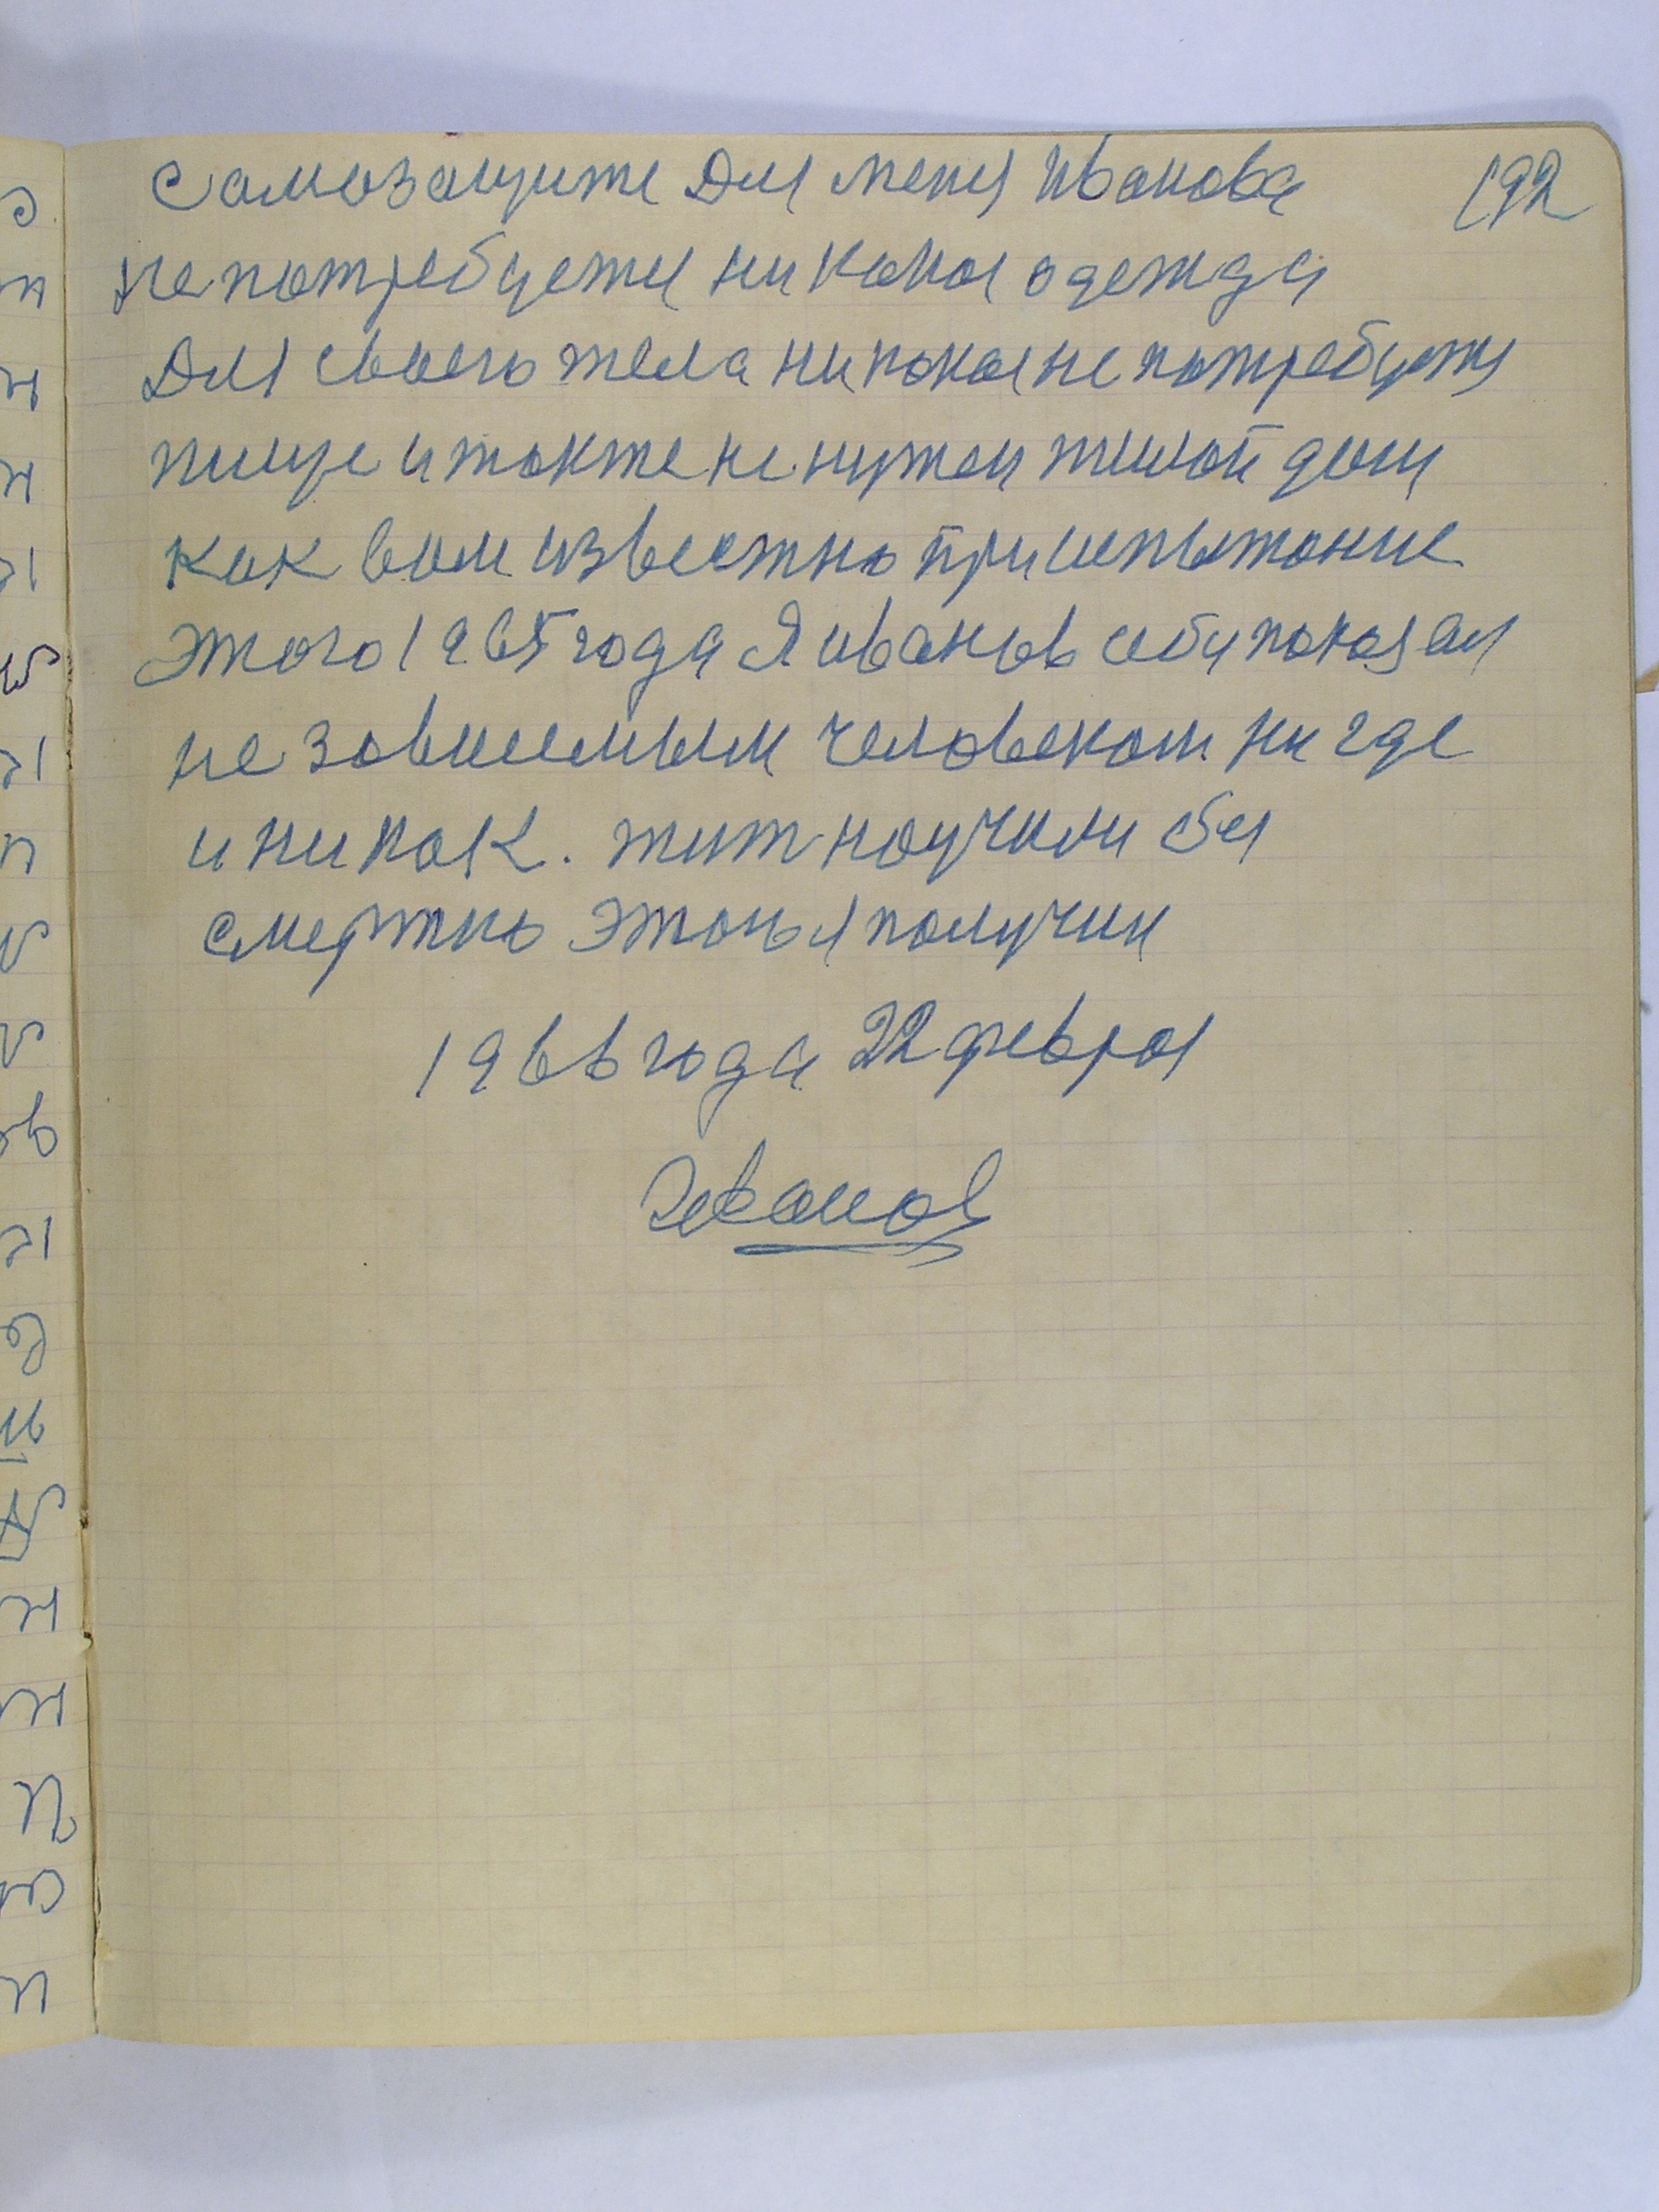 самозащите Для меня Иванова 192
не потребуетя ни какая одежда
Для своего тела ни какая не потребуетя
пище и также не нужен жилой дом
как вам известно при испытание
этого 1965 года Я иванов себя показал
не зависемым человеком ни где
и ни как. жит научили бес
смертно этого я получил
1966 года 22 феврая
Иванов